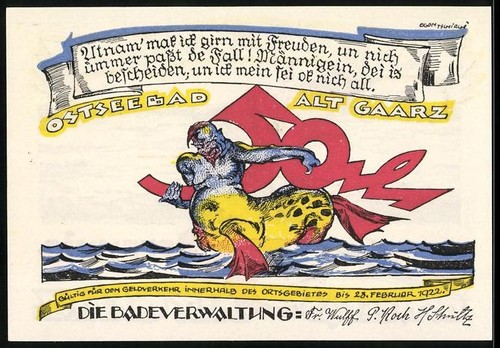 EGON TSCHIRCH
Utnam' mak ick girn mit Freuden, un nich
ümmer paßt de Fall! Männigein, dei is
bescheiden, un ick mein sei ok nich all.
OSTSEEBAD ALT GAARZ
50 Pf
GÜLTIG FÜR DEN GELDVERKEHR INNERHALB DES ORTSGEBIETES BIS 28. FEBRUAR 1922.
DIE BADEVERWALTUNG: Fr. Wulff P. Koch H. Schultz